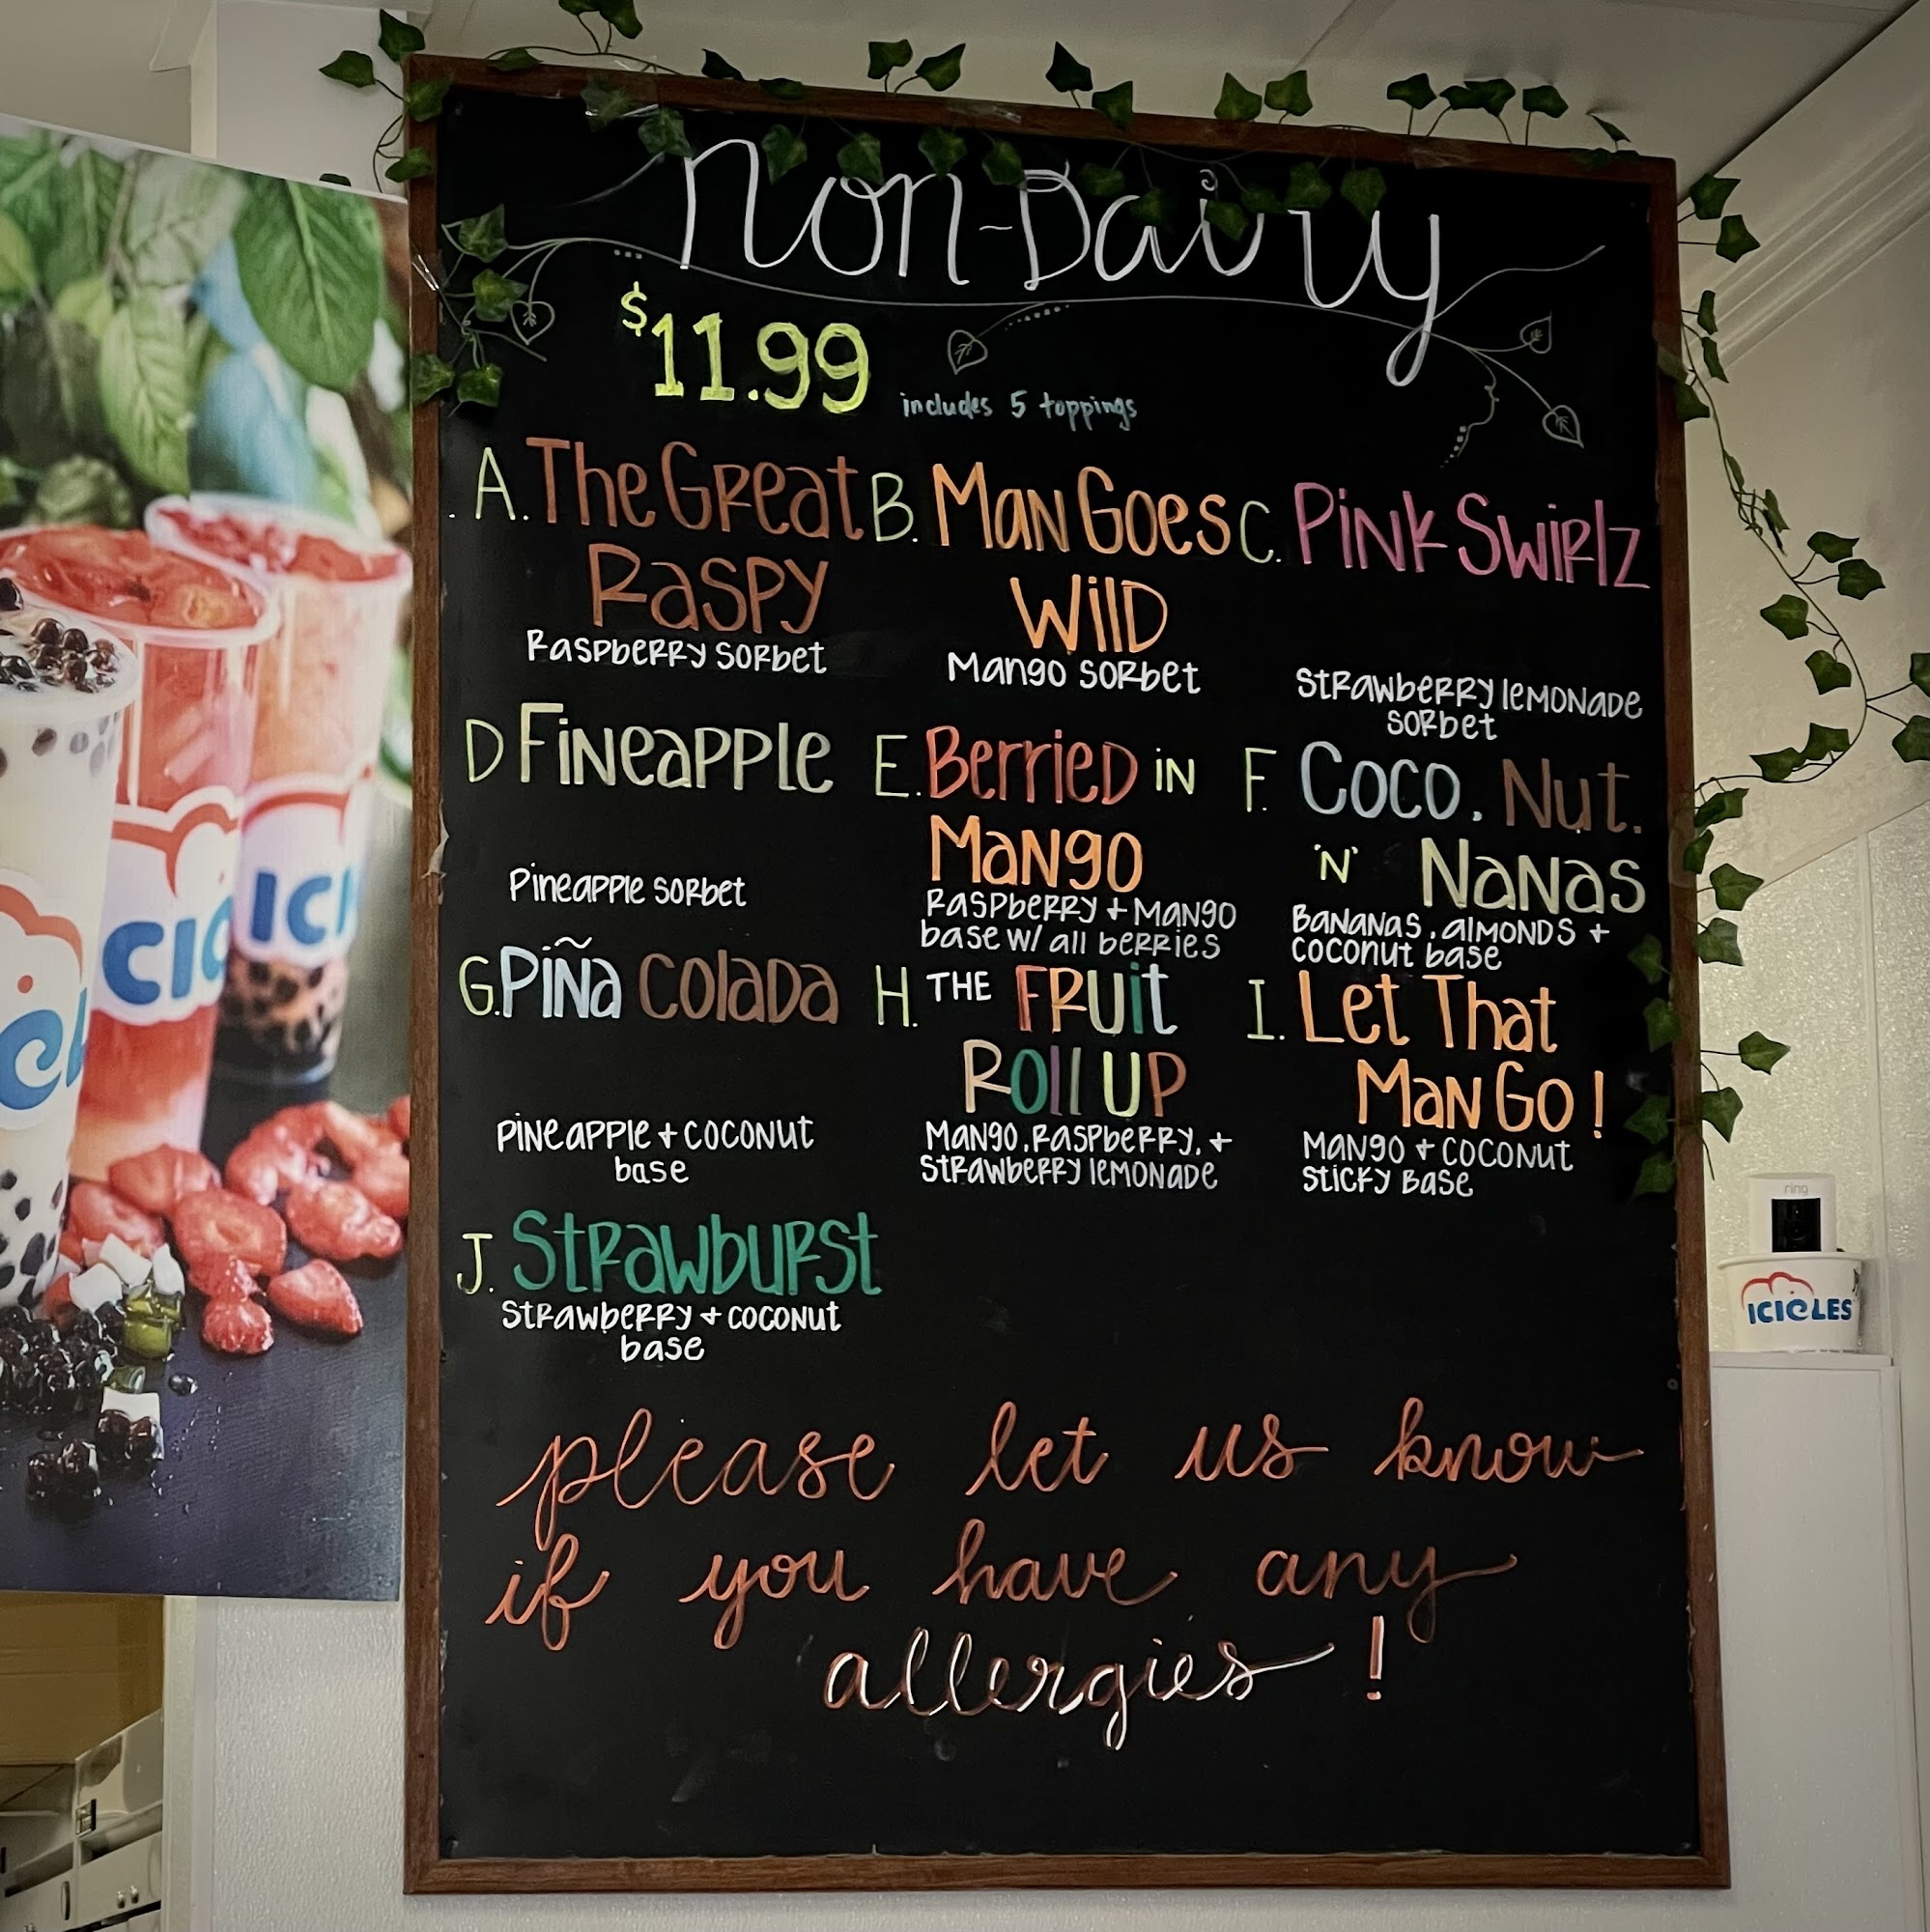 non-Dairy
$11.99 includes 5 toppings
A. The Great
Raspy
Raspberry sorbet
B. Man Goes
Wild
Mango sorbet
C. Pink Swirlz
Strawberry lemonade
sorbet
D Fineapple
Pineapple sorbet
E. Berried in
Mango
Raspberry + Mango
base w/ all berries
F. Coco. Nut.
'N' Nanas
Bananas, almonds +
coconut base
G. Piña Colada
Pineapple + coconut
base
H. The Fruit
Roll Up
Mango, Raspberry, +
Strawberry lemonade
I. Let That
Man Go!
Mango + coconut
sticky base
J. Strawburst
Strawberry + coconut
base
please let us know
if you have any
allergies!
ring
ICICLES